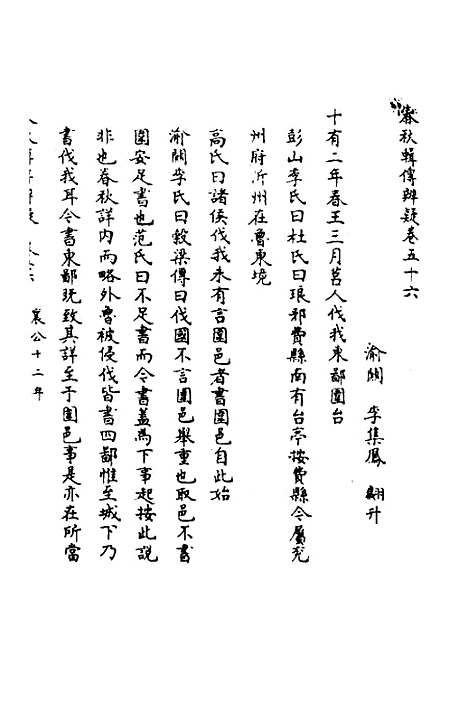 春秋輯傳辨疑卷五十六
渝關 李集鳳 翽升
十有二年春王三月莒人伐我東鄙圍台
彭山李氏曰杜氏曰琅邪費縣南有台亭按費縣今屬兖
州府沂州在魯東境
高氏曰諸侯伐我未有言圍邑者書圍邑自此始
渝關李氏曰穀梁傳曰伐國不言圍邑舉重也取邑不書
圍安足書也范氏曰不足書而今書蓋為下事起按此說
非也春秋詳內而略外魯被侵伐皆書四鄙惟至城下乃
書伐我耳今書東鄙旣致其詳至于圍邑事是亦在所當
襄公十二年